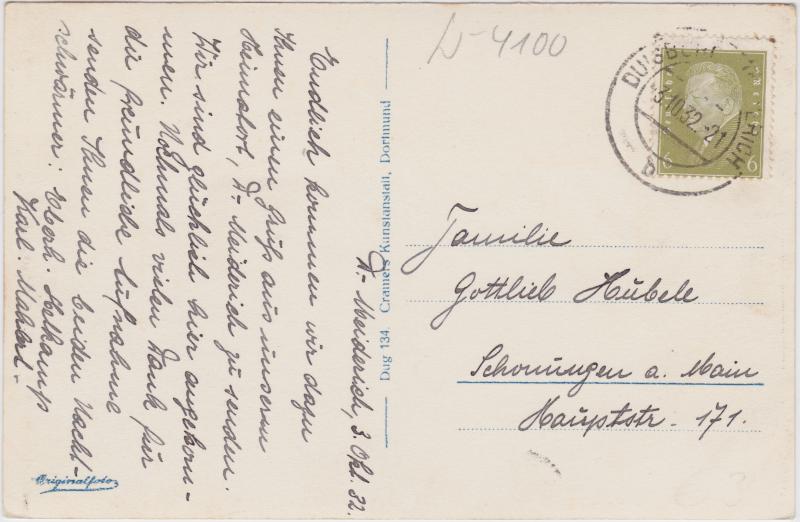 D.-Meiderich, 3. Okt. 32.
Endlich kommen wir dazu
Ihnen einen Gruß aus unserm
Heimatort, D.-Meiderich zu senden.
Wir sind glücklich hier angekom-
men. Nochmals vielen Dank für
die freundliche Aufnahme
senden Ihnen die beiden Nacht-
schwärmer: Eberh. Helkamp
Karl.
Originalfoto
Dug 134 Cramers Kunstanstalt, Dortmund
D-4100
DUISBURG
3.10.32.-21
b
6 6
Familie
Gottlieb Hübele
Schonungen a. Main
Hauptstr. 171.